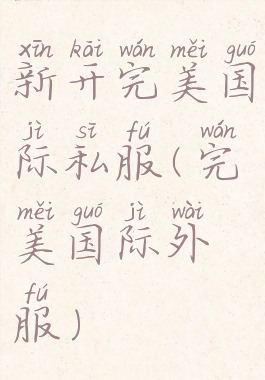 xīn kāi wán měi guó
新开完美国
jì sī fú wán
际私服(完
měi guó jì wài
美国际外
fú
服)